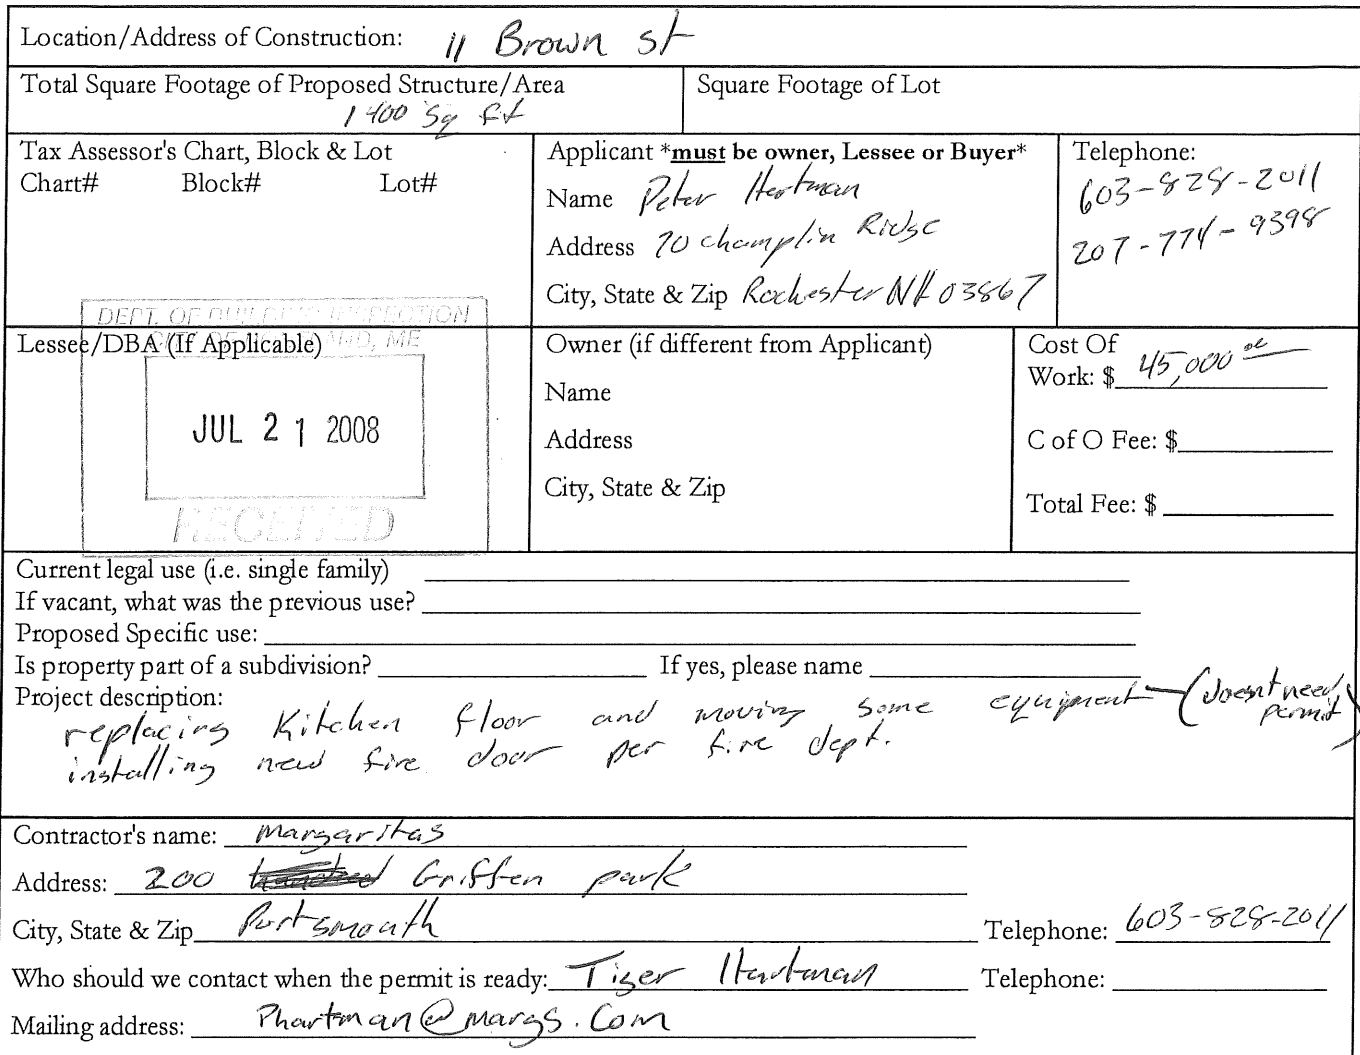 Location/Address of Construction: 11 Brown St
Total Square Footage of Proposed Structure/Area
1400 Sq ft
Square Footage of Lot
Tax Assessor's Chart, Block & Lot
Chart# Block# Lot#
Applicant *must be owner, Lessee or Buyer*
Name Peter Hartman
Address 70 champlin Ridge
City, State & Zip Rochester NH 03867
Telephone:
603-828-2011
207-774-9398
DEPT. OF BUILDING INSPECTION
CITY OF PORTLAND, ME
Lessee/DBA (If Applicable)
JUL 21 2008
RECEIVED
Owner (if different from Applicant)
Name
Address
City, State & Zip
Cost Of
Work: $ 45,000 00
C of O Fee: $
Total Fee: $
Current legal use (i.e. single family)
If vacant, what was the previous use?
Proposed Specific use:
Is property part of a subdivision? If yes, please name
Project description:
replacing Kitchen floor and moving some equipment - (doesnt need permit)
installing new fire door per fire dept.
Contractor's name: Margaritas
Address: 200 Griffen park
City, State & Zip Portsmouth Telephone: 603-828-2011
Who should we contact when the permit is ready: Tiger Hartman Telephone:
Mailing address: Phartman@margs.Com